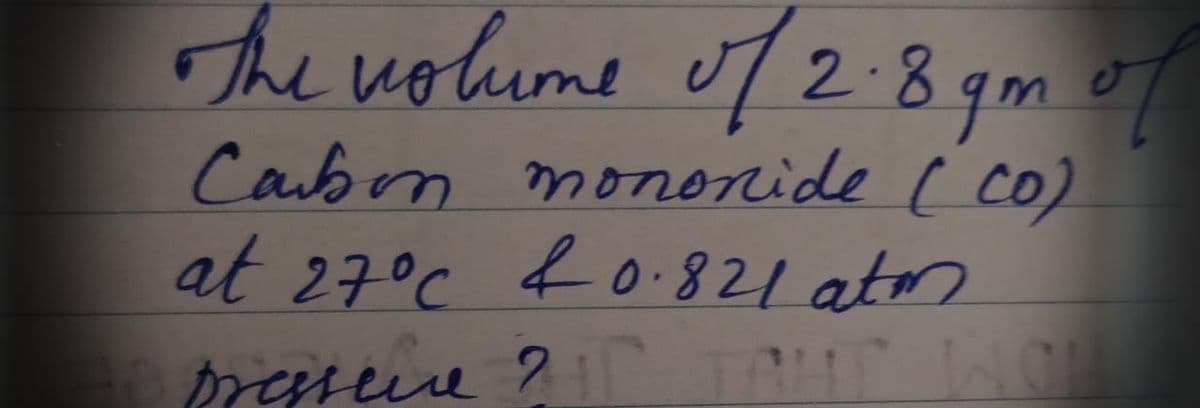 The volume of 2.8 gm of
Carbon monoxide (CO)
at 27°C & 0.821 atm
pressure ?